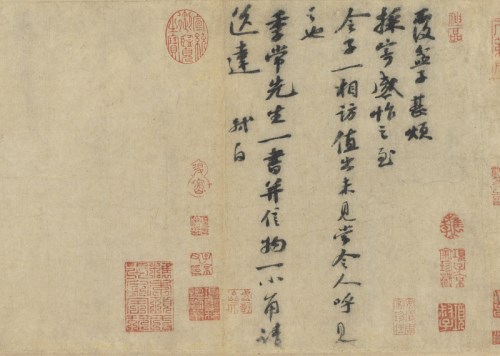 覆盆子甚煩
採寄感怍之至
令子一相訪值出未見當令人呼見
之也
季常先生一書并信物一小角請
送達 軾白